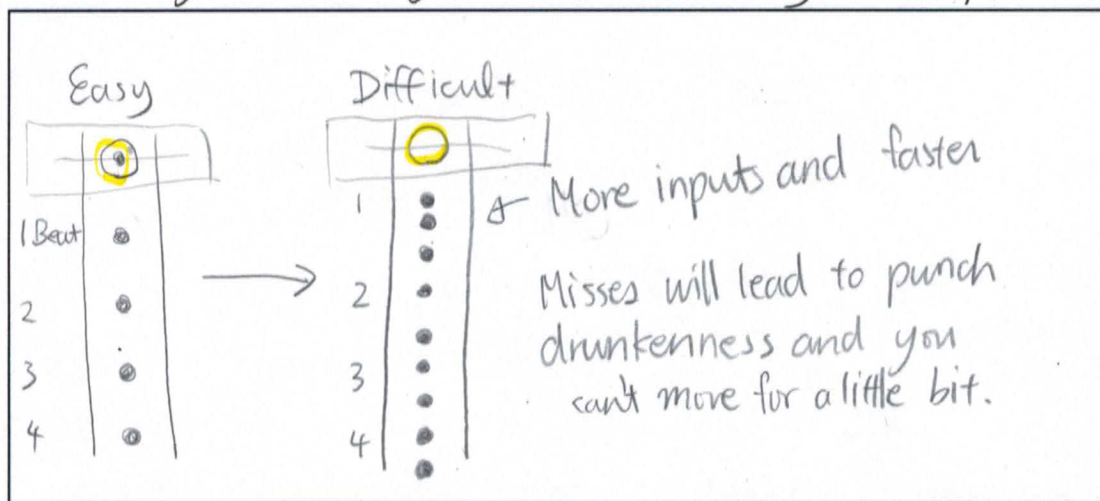 Easy
1 Beat
2
3
4
Difficult
1
2
3
4
More inputs and faster
Misses will lead to punch
drunkenness and you
can't move for a little bit.